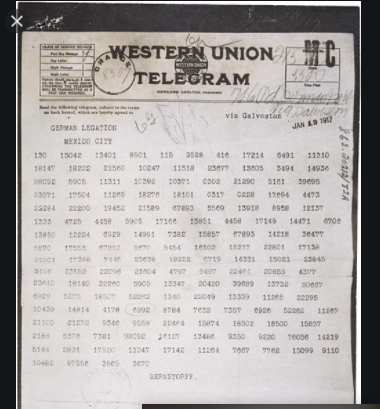 WESTERN UNION
TELEGRAM
NEWCOMB CARLTON, PRESIDENT
CLASS OF SERVICE DESIRED
Fast Day Message
Day Letter
Night Message
Night Letter
Send the following telegram, subject to the terms
on back hereof, which are hereby agreed to
via Galveston
JAN 19 1917
GERMAN LEGATION
MEXICO CITY
130 13042 13401 8501 115 3528 416 17214 6491 11310
18147 18222 21560 10247 11518 23677 13605 3494 14936
98092 5905 11311 10392 10371 0302 21290 5161 39695
23571 17504 11269 18276 18101 0317 0228 17694 4473
22284 22200 19452 21589 67893 5569 13918 8958 12137
1333 4725 4458 5905 17166 13851 4458 17149 14471 6706
13850 12224 6929 14991 7382 15857 67893 14218 36477
5870 17553 67893 5870 5454 16102 15217 22801 17138
21001 17388 7446 23638 18222 6719 14331 15021 23845
3156 23552 22096 21604 4797 9497 22464 20855 4377
23610 18140 22260 5905 13347 20420 39689 13732 20667
6929 5275 18507 52262 1340 22049 13339 11265 22295
10439 14814 4178 6992 8784 7632 7357 6926 52262 11267
21100 21272 9346 9559 22464 15874 18502 18500 15857
2188 5376 7381 98092 16127 13486 9350 9220 76036 14219
5144 2831 17920 11347 17142 11264 7667 7762 15099 9110
10482 97556 3569 3670
BERNSTORFF.